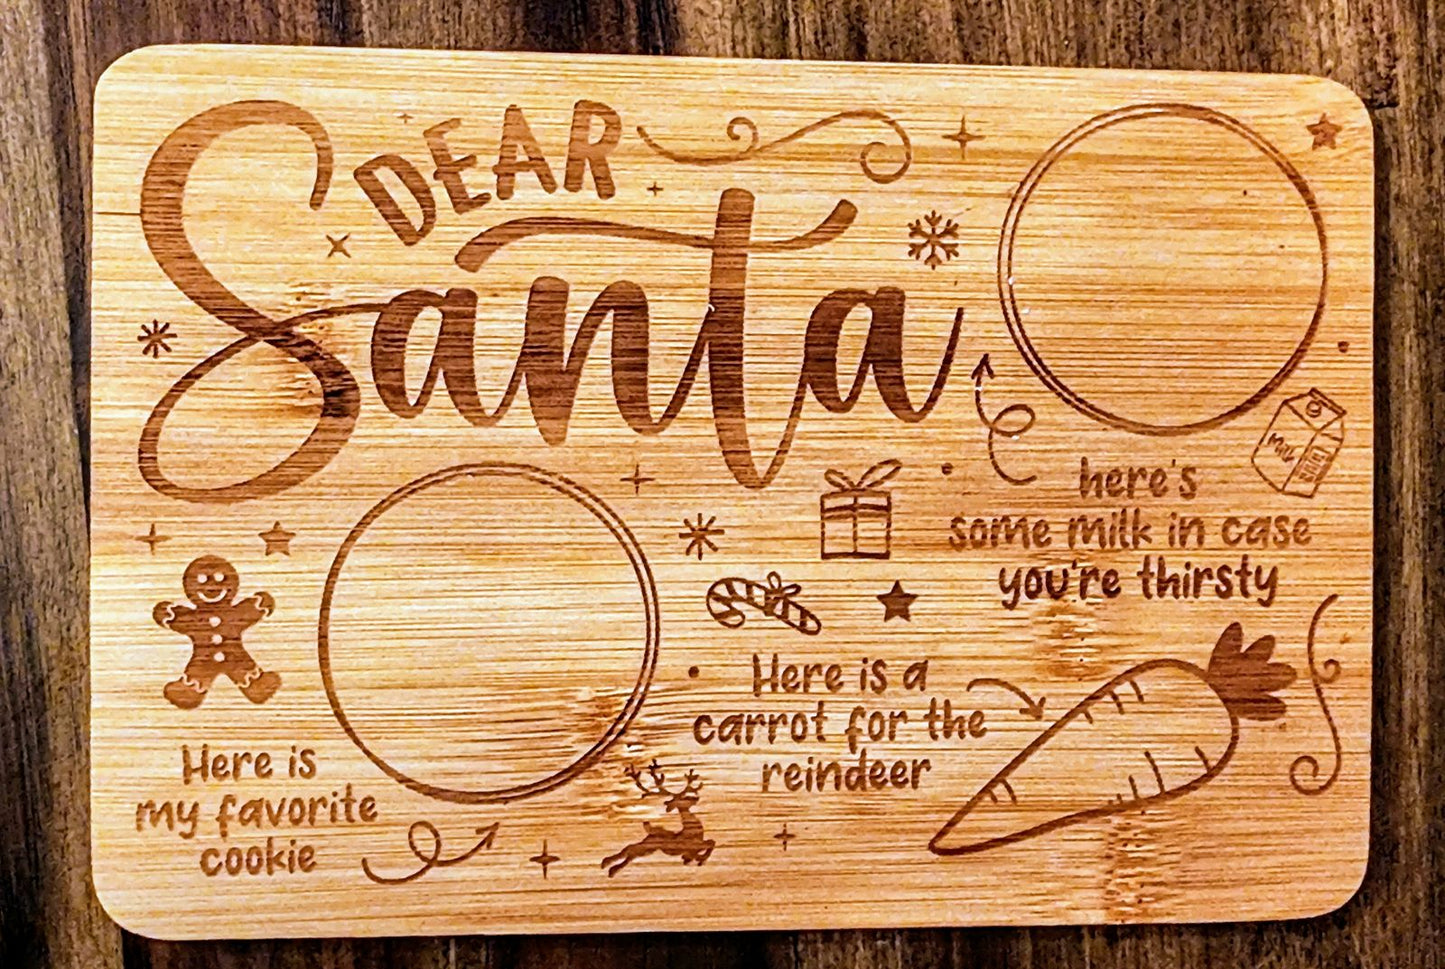 DEAR
Santa
here's
some milk in case
you're thirsty
Milk
Here is a
carrot for the
reindeer
Here is
my favorite
cookie